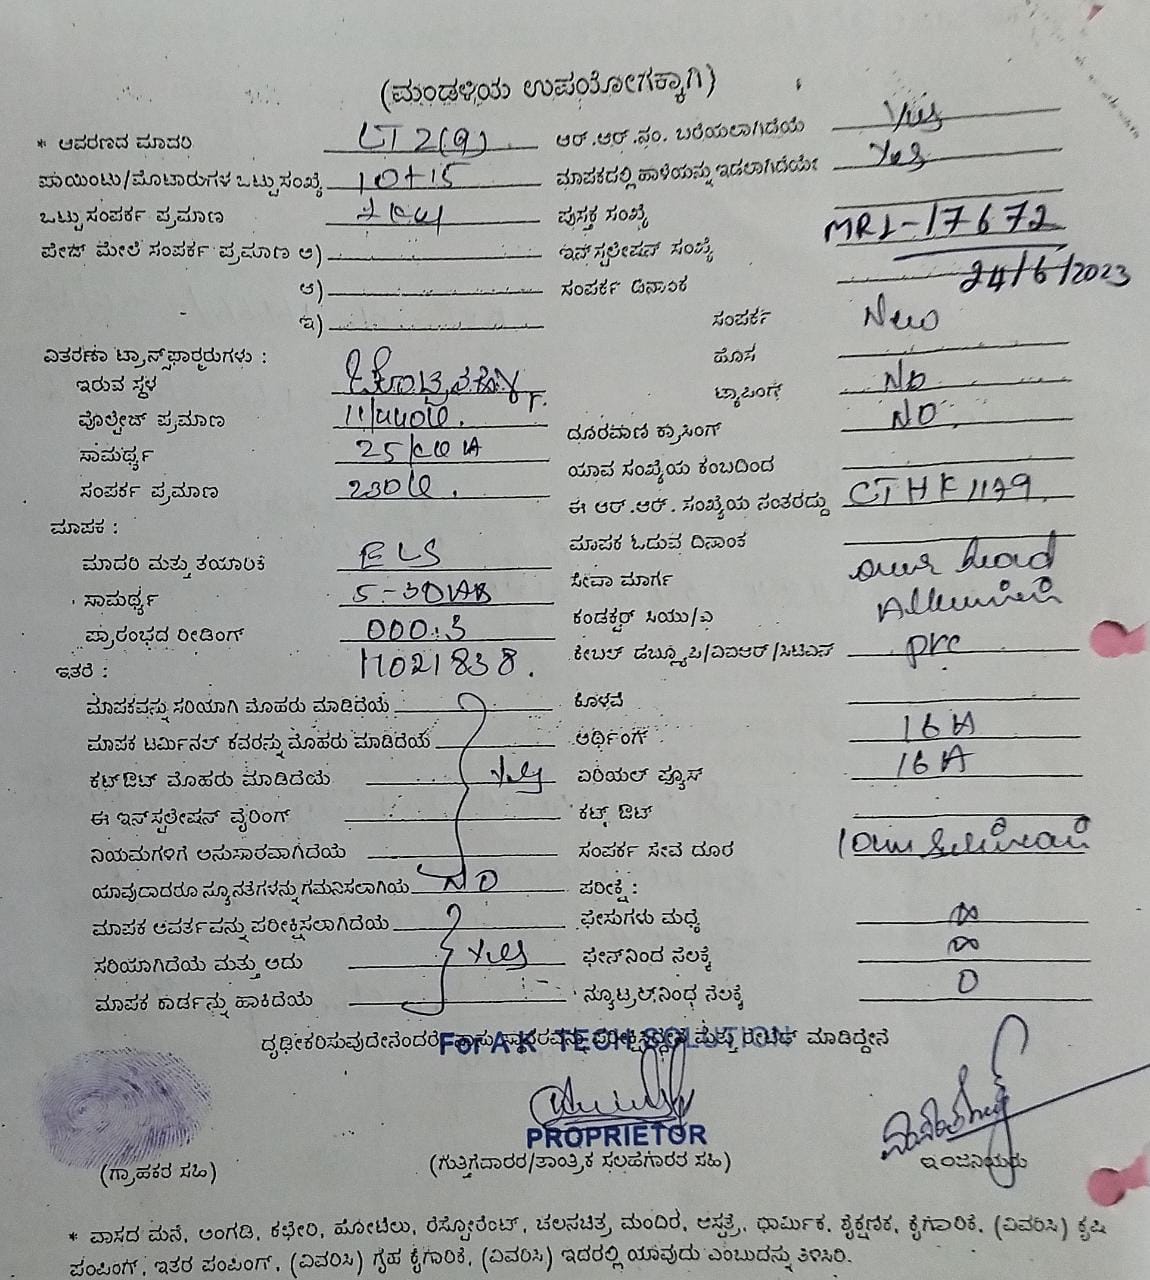 (ಮಂಡಳಿಯ ಉಪಯೋಗಕ್ಕಾಗಿ)
* ಆವರಣದ ಮಾದರಿ LT 2(a) ಆರ್.ಆರ್.ನಂ. ಬರೆಯಲಾಗಿದೆಯೆ Yes
ಪಾಯಿಂಟು/ಮೊಟಾರುಗಳ ಒಟ್ಟು ಸಂಖ್ಯೆ 10+15 ಮಾಪಕದಲ್ಲಿ ಹಾಳೆಯನ್ನು ಇಡಲಾಗಿದೆಯೇ Yes
ಒಟ್ಟು ಸಂಪರ್ಕ ಪ್ರಮಾಣ ಪುಸ್ತಕ ಸಂಖ್ಯೆ
ಪೇಜ್ ಮೇಲೆ ಸಂಪರ್ಕ ಪ್ರಮಾಣ ಅ) ಇನ್‌ಸ್ಟಲೇಷನ್ ಸಂಖ್ಯೆ MRL-17672
ಆ) ಸಂಪರ್ಕ ದಿನಾಂಕ 24/6/2023
ಇ) ಸಂಪರ್ಕ New
ವಿತರಣಾ ಟ್ರಾನ್ಸ್‌ಫಾರ್ಮರುಗಳು : ಹೊಸ
ಇರುವ ಸ್ಥಳ ಟ್ಯಾಪಿಂಗ್ NO
ವೊಲ್ಟೇಜ್ ಪ್ರಮಾಣ 11/440V. ದೂರವಾಣಿ ಕ್ರಾಸಿಂಗ್ NO.
ಸಾಮರ್ಥ್ಯ 25/KVA ಯಾವ ಸಂಖ್ಯೆಯ ಕಂಬದಿಂದ
ಸಂಪರ್ಕ ಪ್ರಮಾಣ 230V. ಈ ಆರ್.ಆರ್. ಸಂಖ್ಯೆಯ ನಂತರದ್ದು CTHK1179.
ಮಾಪಕ : ಮಾಪಕ ಓದುವ ದಿನಾಂಕ
ಮಾದರಿ ಮತ್ತು ತಯಾರಿಕೆ ELS ಸೇವಾ ಮಾರ್ಗ over head
ಸಾಮರ್ಥ್ಯ 5-30A ಕಂಡಕ್ಟರ್ ಸಿಯು/ಎ
ಪ್ರಾರಂಭದ ರೀಡಿಂಗ್ 000.3 ಕೇಬಲ್ ಡಬ್ಲ್ಯೂಪಿ/ವಿಐಆರ್/ಸಿಟಿಎಸ್ pvc
ಇತರೆ : 11021838.
ಮಾಪಕವನ್ನು ಸರಿಯಾಗಿ ಮೊಹರು ಮಾಡಿದೆಯೆ ಕೊಳವೆ
ಮಾಪಕ ಟರ್ಮಿನಲ್ ಕವರನ್ನು ಮೊಹರು ಮಾಡಿದೆಯೆ ಅರ್ಥಿಂಗ್ 16 A
ಕಟ್‌ಔಟ್ ಮೊಹರು ಮಾಡಿದೆಯೆ Yes ಏರಿಯಲ್ ಪ್ಯೂಸ್ 16A
ಈ ಇನ್‌ಸ್ಟಲೇಷನ್ ವೈರಿಂಗ್ ಕಟ್ಸ್ ಔಟ್
ನಿಯಮಗಳಿಗೆ ಅನುಸಾರವಾಗಿದೆಯೆ ಸಂಪರ್ಕ ಸೇವೆ ದೂರ
ಯಾವುದಾದರೂ ನ್ಯೂನತೆಗಳನ್ನು ಗಮನಿಸಲಾಗಿಯೆ NO ಪರೀಕ್ಷೆ :
ಮಾಪಕ ಆವರ್ತವನ್ನು ಪರೀಕ್ಷಿಸಲಾಗಿದೆಯೆ ಫೇಸುಗಳು ಮಧ್ಯೆ ∞
ಸರಿಯಾಗಿದೆಯೆ ಮತ್ತು ಅದು Yes ಫೇಸ್‌ನಿಂದ ನೆಲಕ್ಕೆ ∞
ಮಾಪಕ ಕಾರ್ಡನ್ನು ಹಾಕಿದೆಯೆ ನ್ಯೂಟ್ರಲ್‌ನಿಂಧ ನೆಲಕ್ಕೆ 0
ದೃಢೀಕರಿಸುವುದೇನೆಂದರೆ ಮತ್ತು ರೇಟೆಡ್ ಮಾಡಿದ್ದೇನೆ
For A K TECH SOLUTION
PROPRIETOR
(ಗ್ರಾಹಕರ ಸಹಿ) (ಗುತ್ತಿಗೆದಾರರ/ತಾಂತ್ರಿಕ ಸಲಹೆಗಾರರ ಸಹಿ) ಇಂಜನಿಯರು
* ವಾಸದ ಮನೆ, ಅಂಗಡಿ, ಕಛೇರಿ, ಹೋಟೆಲು, ರೆಸ್ಟೋರೆಂಟ್, ಚಲನಚಿತ್ರ ಮಂದಿರ, ಆಸ್ಪತ್ರೆ, ಧಾರ್ಮಿಕ, ಶೈಕ್ಷಣಿಕ, ಕೈಗಾರಿಕೆ, (ವಿವರಿಸಿ) ಕೃಷಿ
ಪಂಪಿಂಗ್, ಇತರ ಪಂಪಿಂಗ್, (ವಿವರಿಸಿ) ಗೃಹ ಕೈಗಾರಿಕೆ, (ವಿವರಿಸಿ) ಇದರಲ್ಲಿ ಯಾವುದು ಎಂಬುದನ್ನು ತಿಳಿಸಿರಿ.